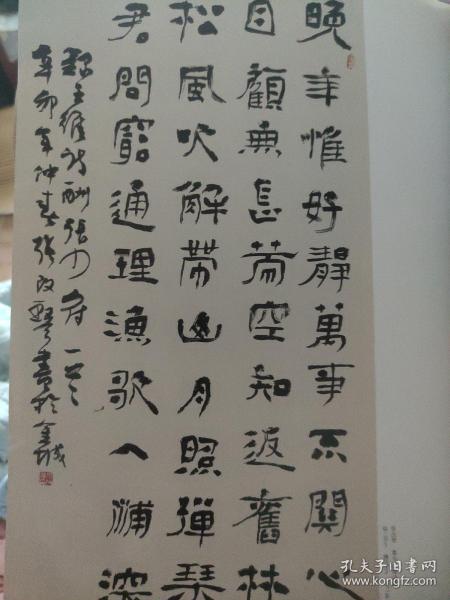 晚年惟好靜萬事不關心
自顧無長策空知返舊林
松風吹解帶山月照彈琴
君問窮通理漁歌入浦深
録王維詩酬張少府一首
辛卯年仲春張改琴書於金城
孔夫子旧书网